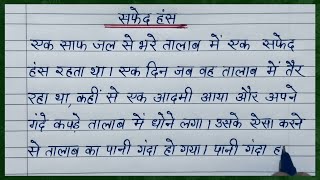 सफेद हंस
एक साफ जल से भरे तालाब में एक सफेद
हंस रहता था। एक दिन जब वह तालाब में तैर
रहा था, कहीं से एक आदमी आया और अपने
गंदे कपड़े तालाब में धोने लगा। उसके ऐसा करने
से तालाब का पानी गंदा हो गया। पानी गंदा ह